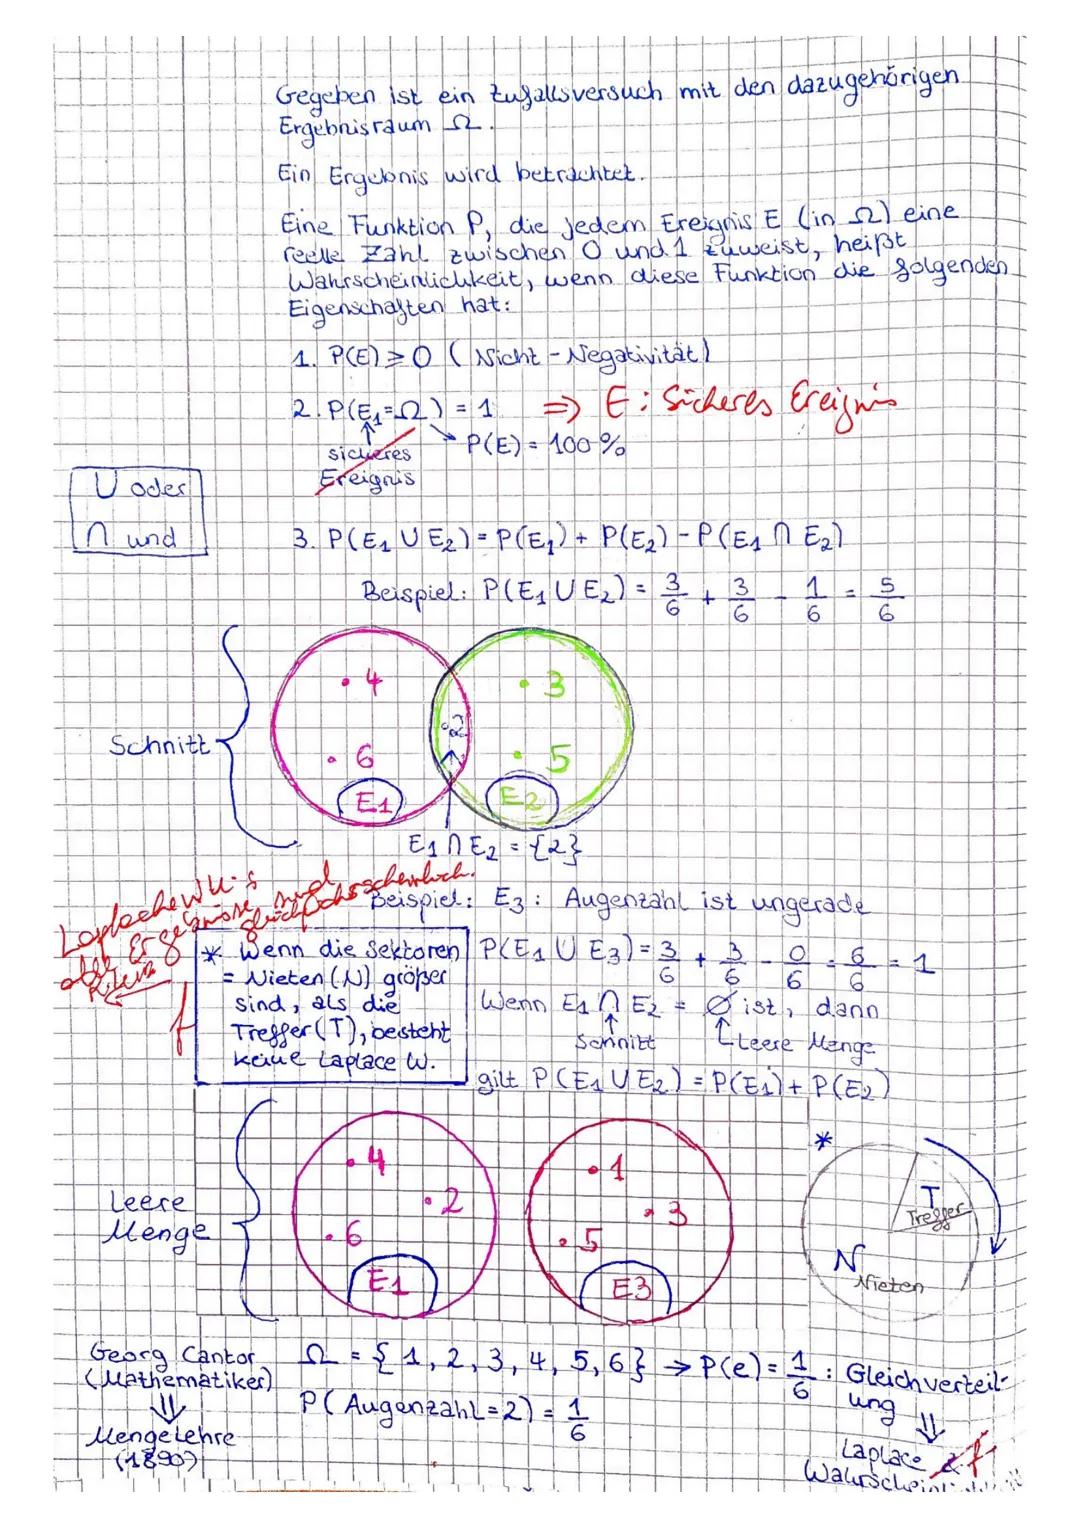 Gegeben ist ein Zufallsversuch mit den dazugehörigen
Ergebnisraum Ω.
Ein Ergebnis wird betrachtet.
Eine Funktion P, die jedem Ereignis E (in Ω) eine
reelle Zahl zwischen 0 und 1 zuweist, heißt
Wahrscheinlichkeit, wenn diese Funktion die folgenden
Eigenschaften hat:
1. P(E) ≥ 0 (Nicht-Negativität)
2. P(E₁=Ω) = 1 ⇒ E: Sicheres Ereignis
↑ ↘ P(E) = 100%
sicheres
Ereignis
U oder
∩ und
3. P(E₁ U E₂) = P(E₁) + P(E₂) - P(E₁ ∩ E₂)
Beispiel: P(E₁ U E₂) = 3/6 + 3/6 - 1/6 = 5/6
Schnitt
4
6
E1
2
3
5
E2
E₁ ∩ E₂ = {2}
Laplace W. is
alle Ergebnisse sind
gleich
Beispiel: E₃: Augenzahl ist ungerade
* Wenn die Sektoren
= Nieten (N) größer
sind, als die
Treffer (T), besteht
keine Laplace W.
f
P(E₁ U E₃) = 3/6 + 3/6 - 0/6 = 6/6 = 1
Wenn E₁ ∩ E₂ = Ø ist, dann
↑ Schnitt ↑ Leere Menge
gilt P(E₁ U E₂) = P(E₁) + P(E₂)
Leere
Menge
4
2
6
E1
1
3
5
E3
*
T
Treffer
N
Nieten
Georg Cantor
(Mathematiker)
⇓
Mengelehre
(1890)
Ω = {1, 2, 3, 4, 5, 6} → P(e) = 1/6 : Gleichverteil-
ung
P(Augenzahl = 2) = 1/6
⇓
Laplace f